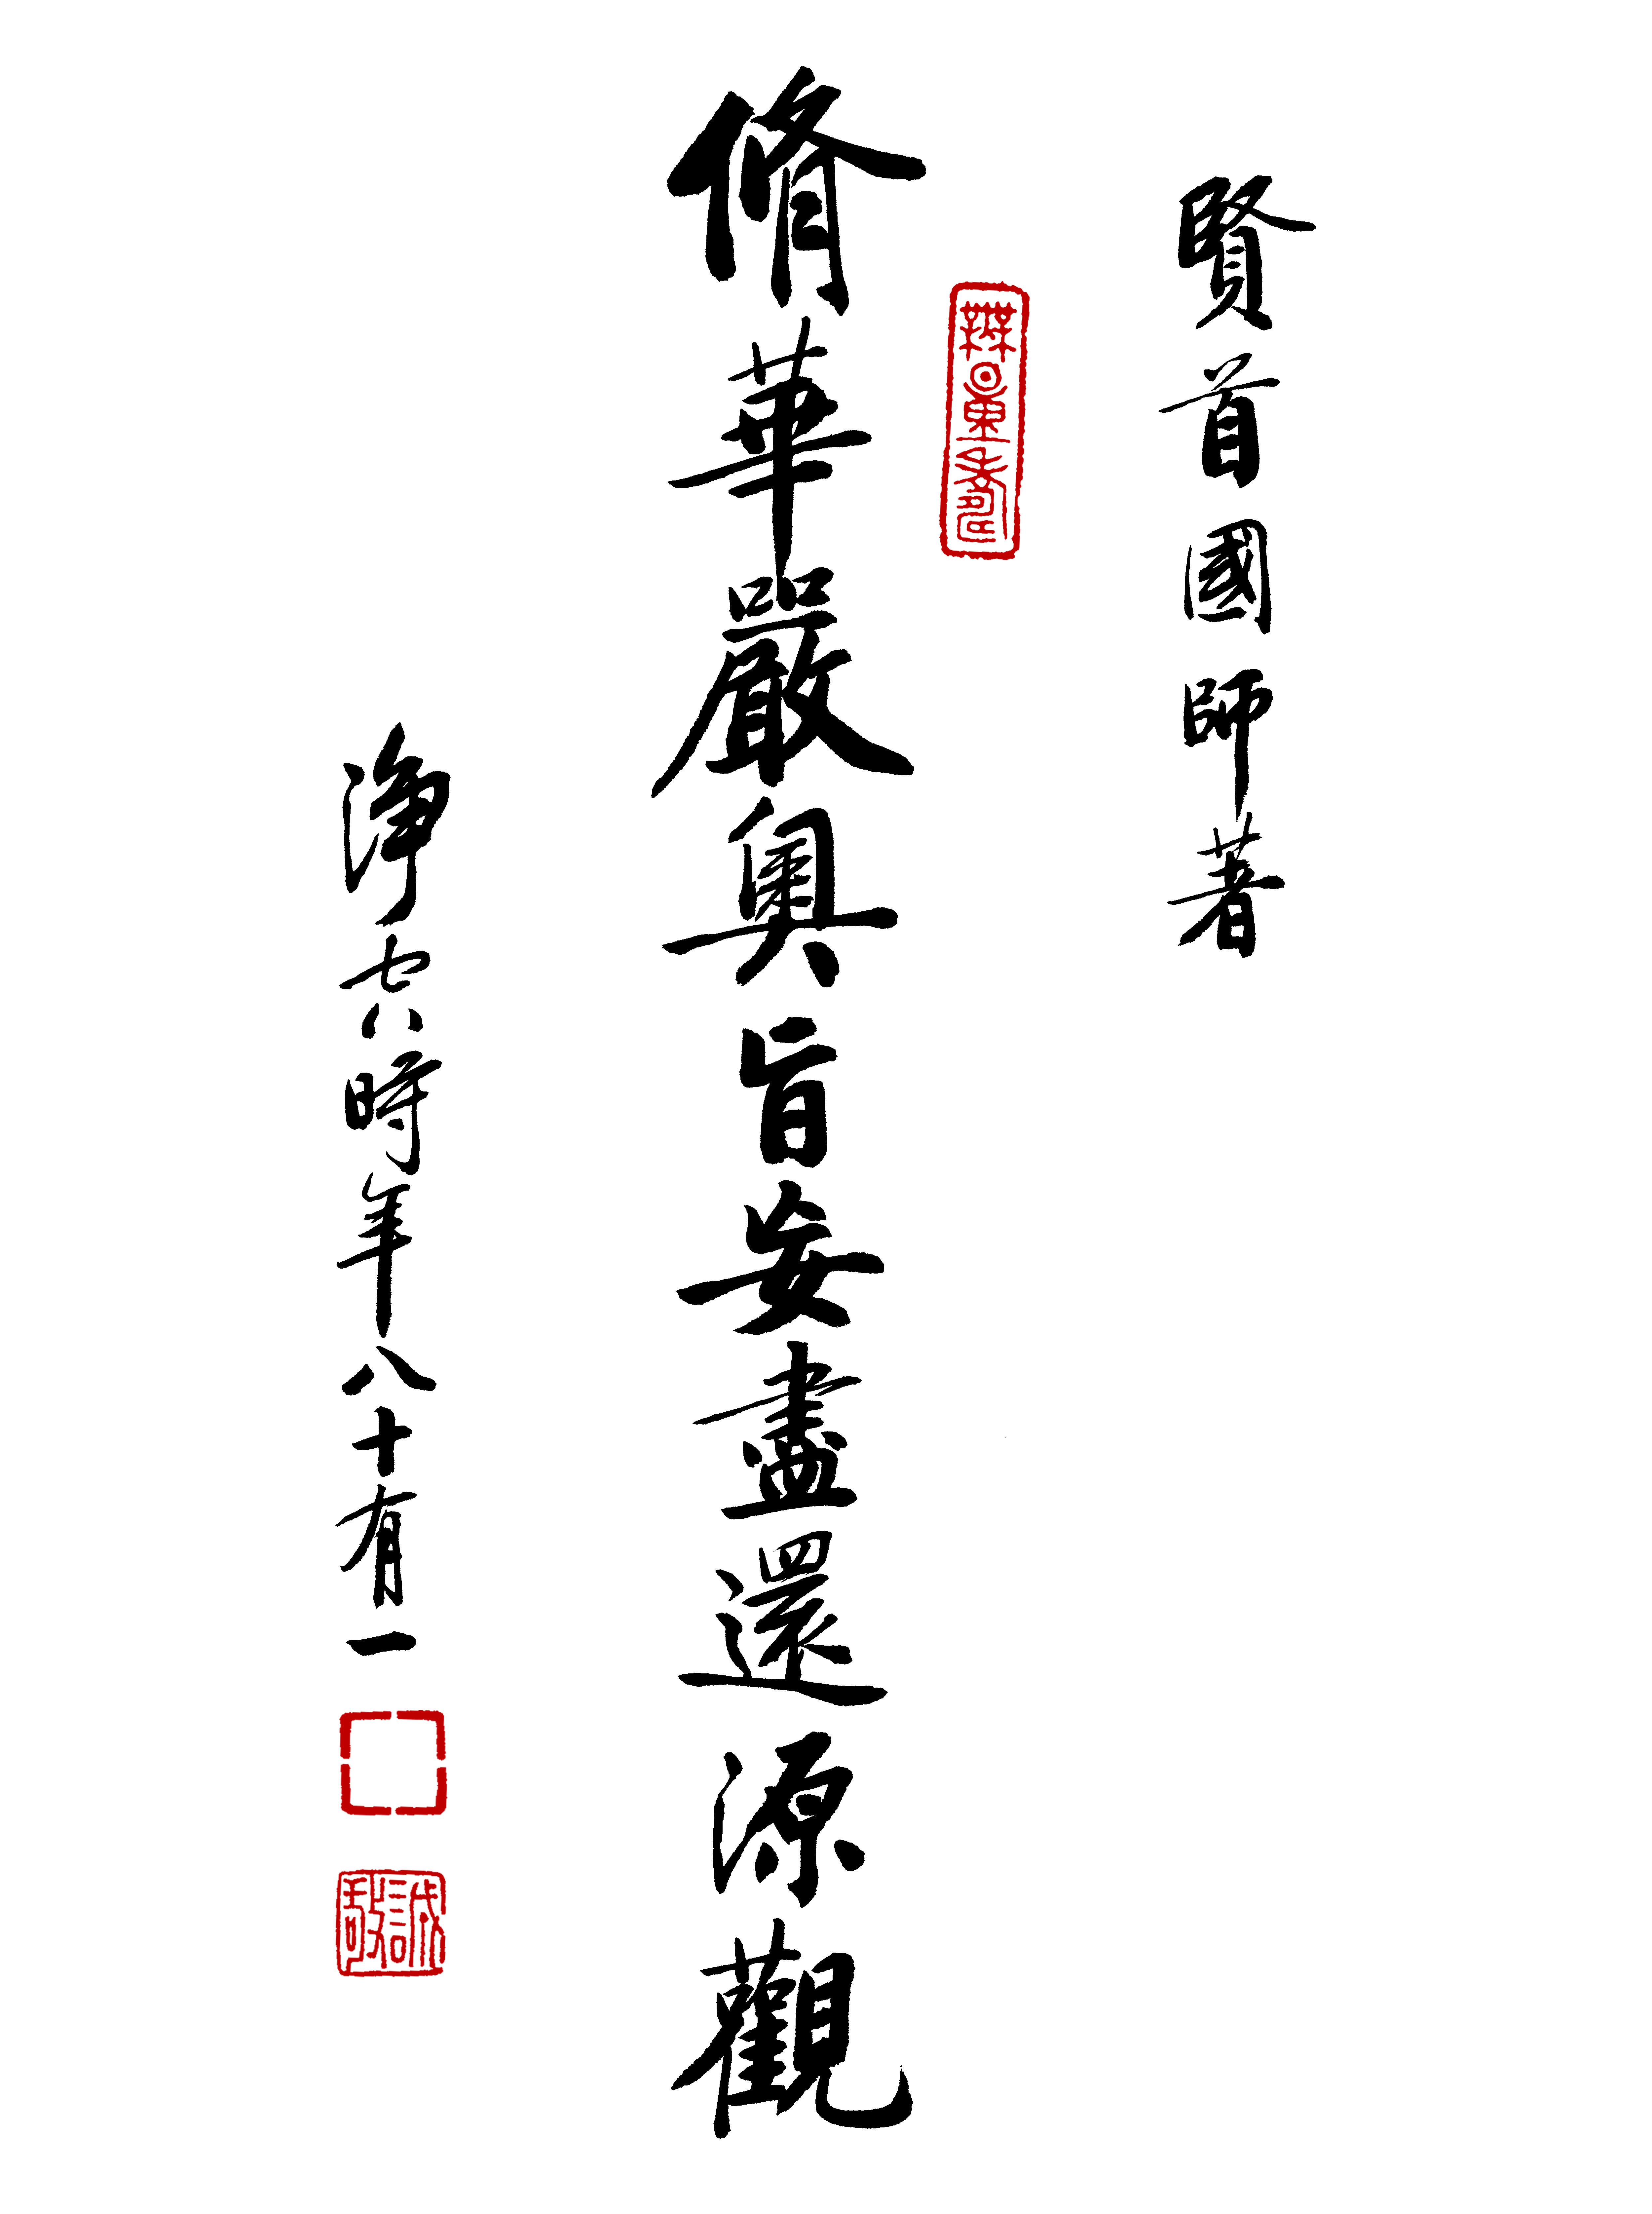 賢首國師著
無量壽
脩華嚴奧旨妄盡還源觀
淨空時年八十有一
誠敬